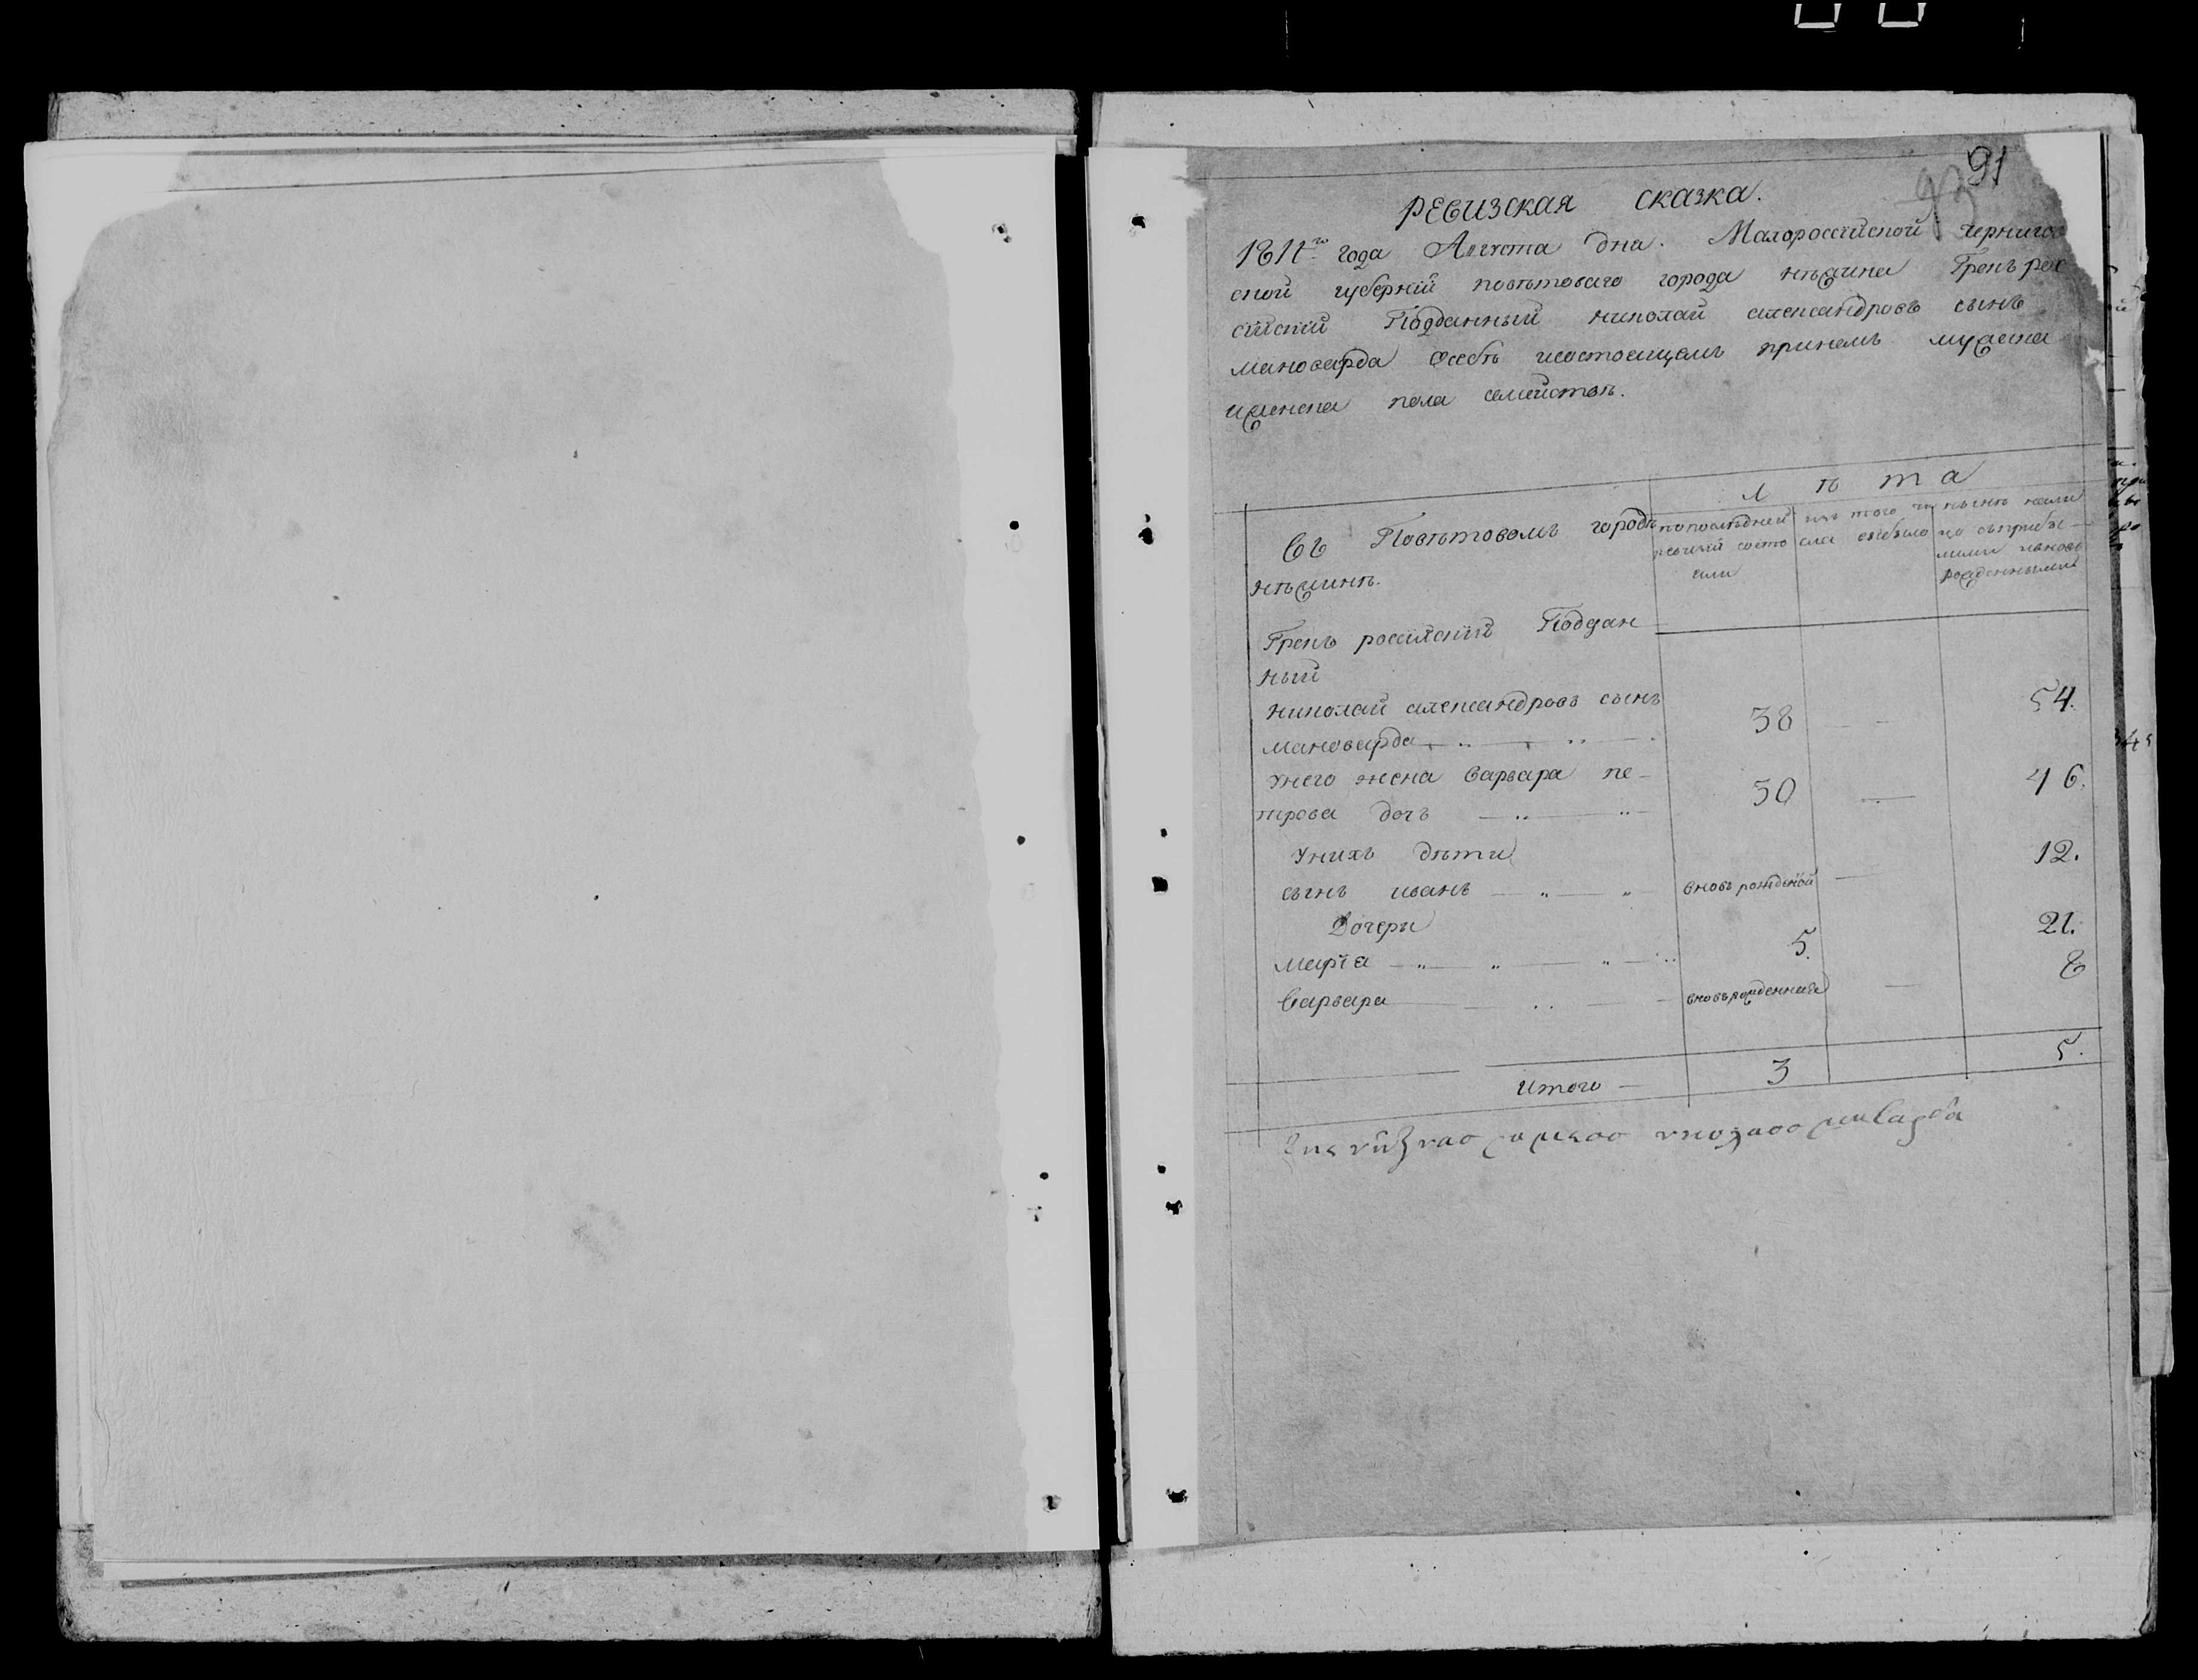 91
93
РЕВИЗСКАЯ СКАЗКА.
1811го года Августа дна. Малороссійской чернигов
ской губерній повѣтоваго города нѣжина Грекъ рос
сійскій Подданный николай александровъ сынъ
мановарда Осебѣ исостоящемъ принемъ мужеска
иженска пола семействѣ.
л ѣ т а
Въ Повѣтовомъ городѣ
нѣжинѣ.
попослѣдней
ревизій состо
яли
изъ того чи
сла выбыло
нынѣ нали
цо съприбы-
лыми ивновь
рожденными
Грекъ россійскій Поддан
ный
николай александровъ сынъ
мановарда 38 54.
Унего жена варвара пе-
трова дочъ 30 46.
Унихъ дѣти
сынъ иванъ вновь рожденой 12.
Дочери
марія 5. 21.
варвара вновьрожденная 8
Итого 3 5.